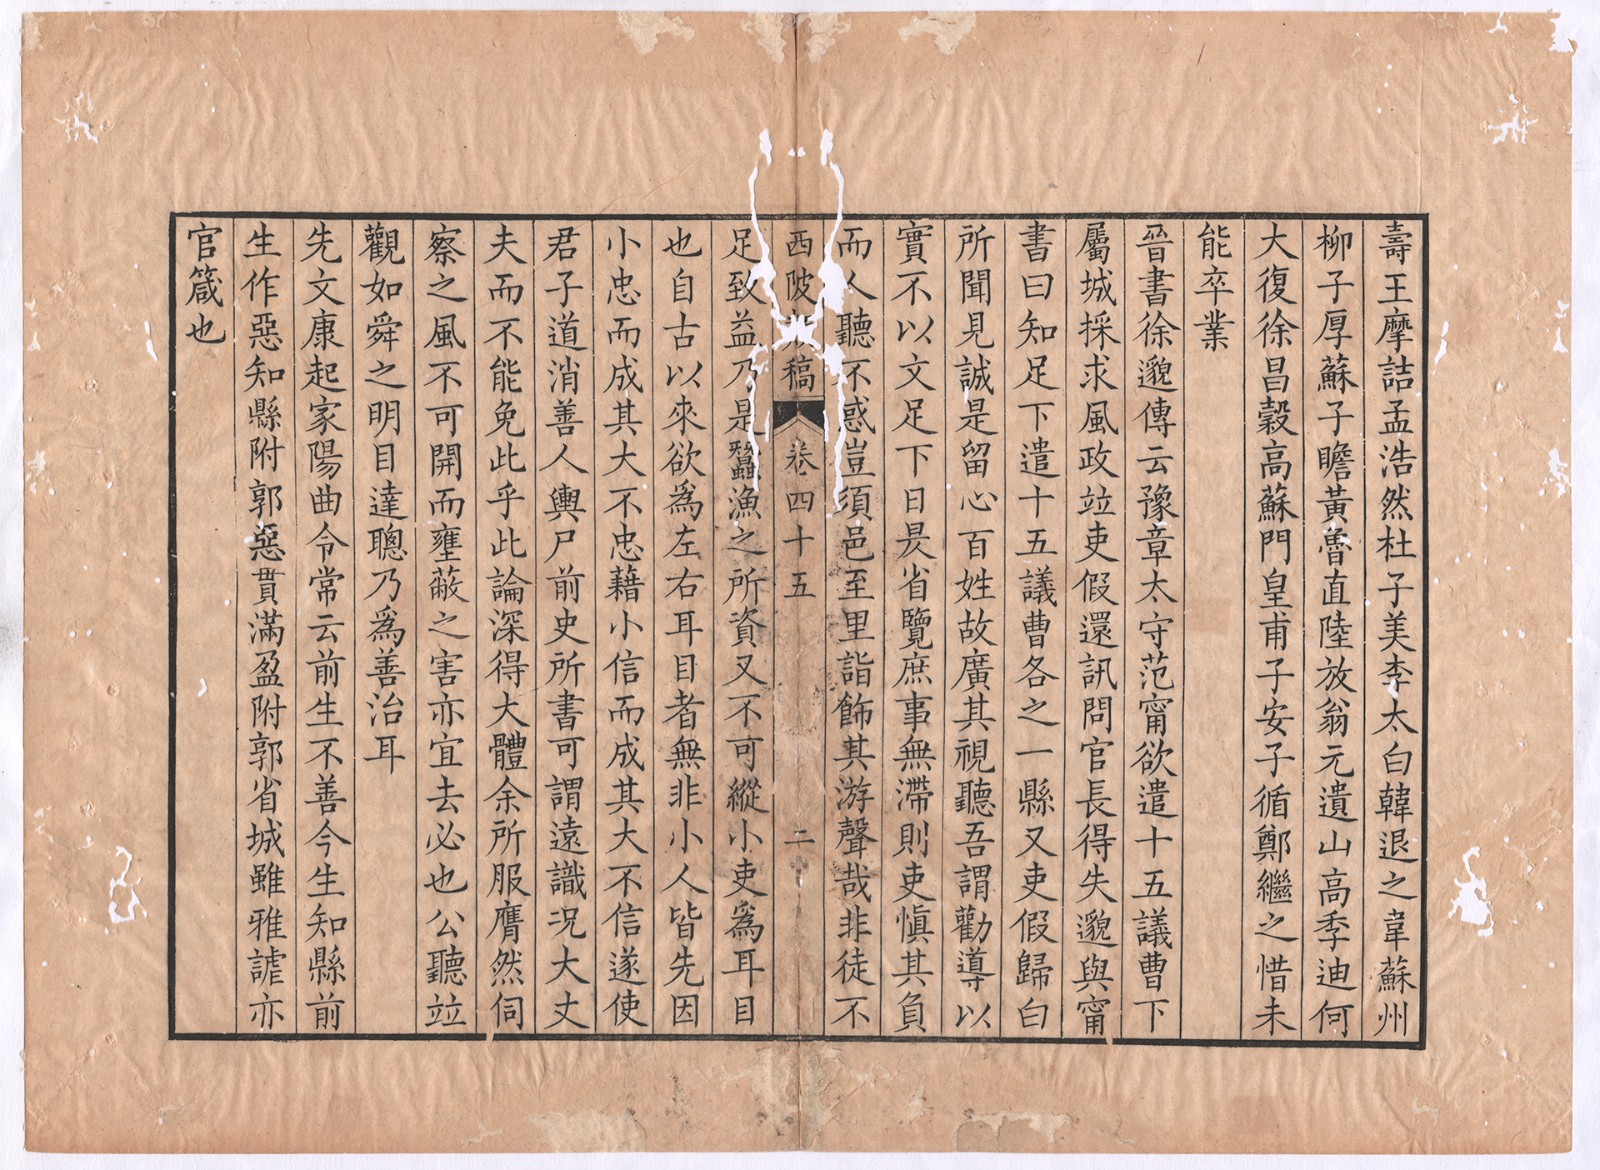 壽王摩詰孟浩然杜子美李太白韓退之韋蘇州
柳子厚蘇子瞻黃魯直陸放翁元遺山高季迪何
大復徐昌穀高蘇門皇甫子安子循鄭繼之惜未
能卒業
晉書徐邈傳云豫章太守范甯欲遣十五議曹下
屬城採求風政竝吏假還訊問官長得失邈與甯
書曰知足下遣十五議曹各之一縣又吏假歸白
所聞見誠是留心百姓故廣其視聽吾謂勸導以
實不以文足下日昃省覽庶事無滯則吏愼其負
而人聽不惑豈須邑至里詣飾其游聲哉非徒不
西陂稿 卷四十五 二
足致益乃是蠶漁之所資又不可縱小吏爲耳目
也自古以來欲爲左右耳目者無非小人皆先因
小忠而成其大不忠藉小信而成其大不信遂使
君子道消善人輿尸前史所書可謂遠識况大丈
夫而不能免此乎此論深得大體余所服膺然伺
察之風不可開而壅蔽之害亦宜去必也公聽竝
觀如舜之明目達聰乃爲善治耳
先文康起家陽曲令常云前生不善今生知縣前
生作惡知縣附郭惡貫滿盈附郭省城雖雅謔亦
官箴也